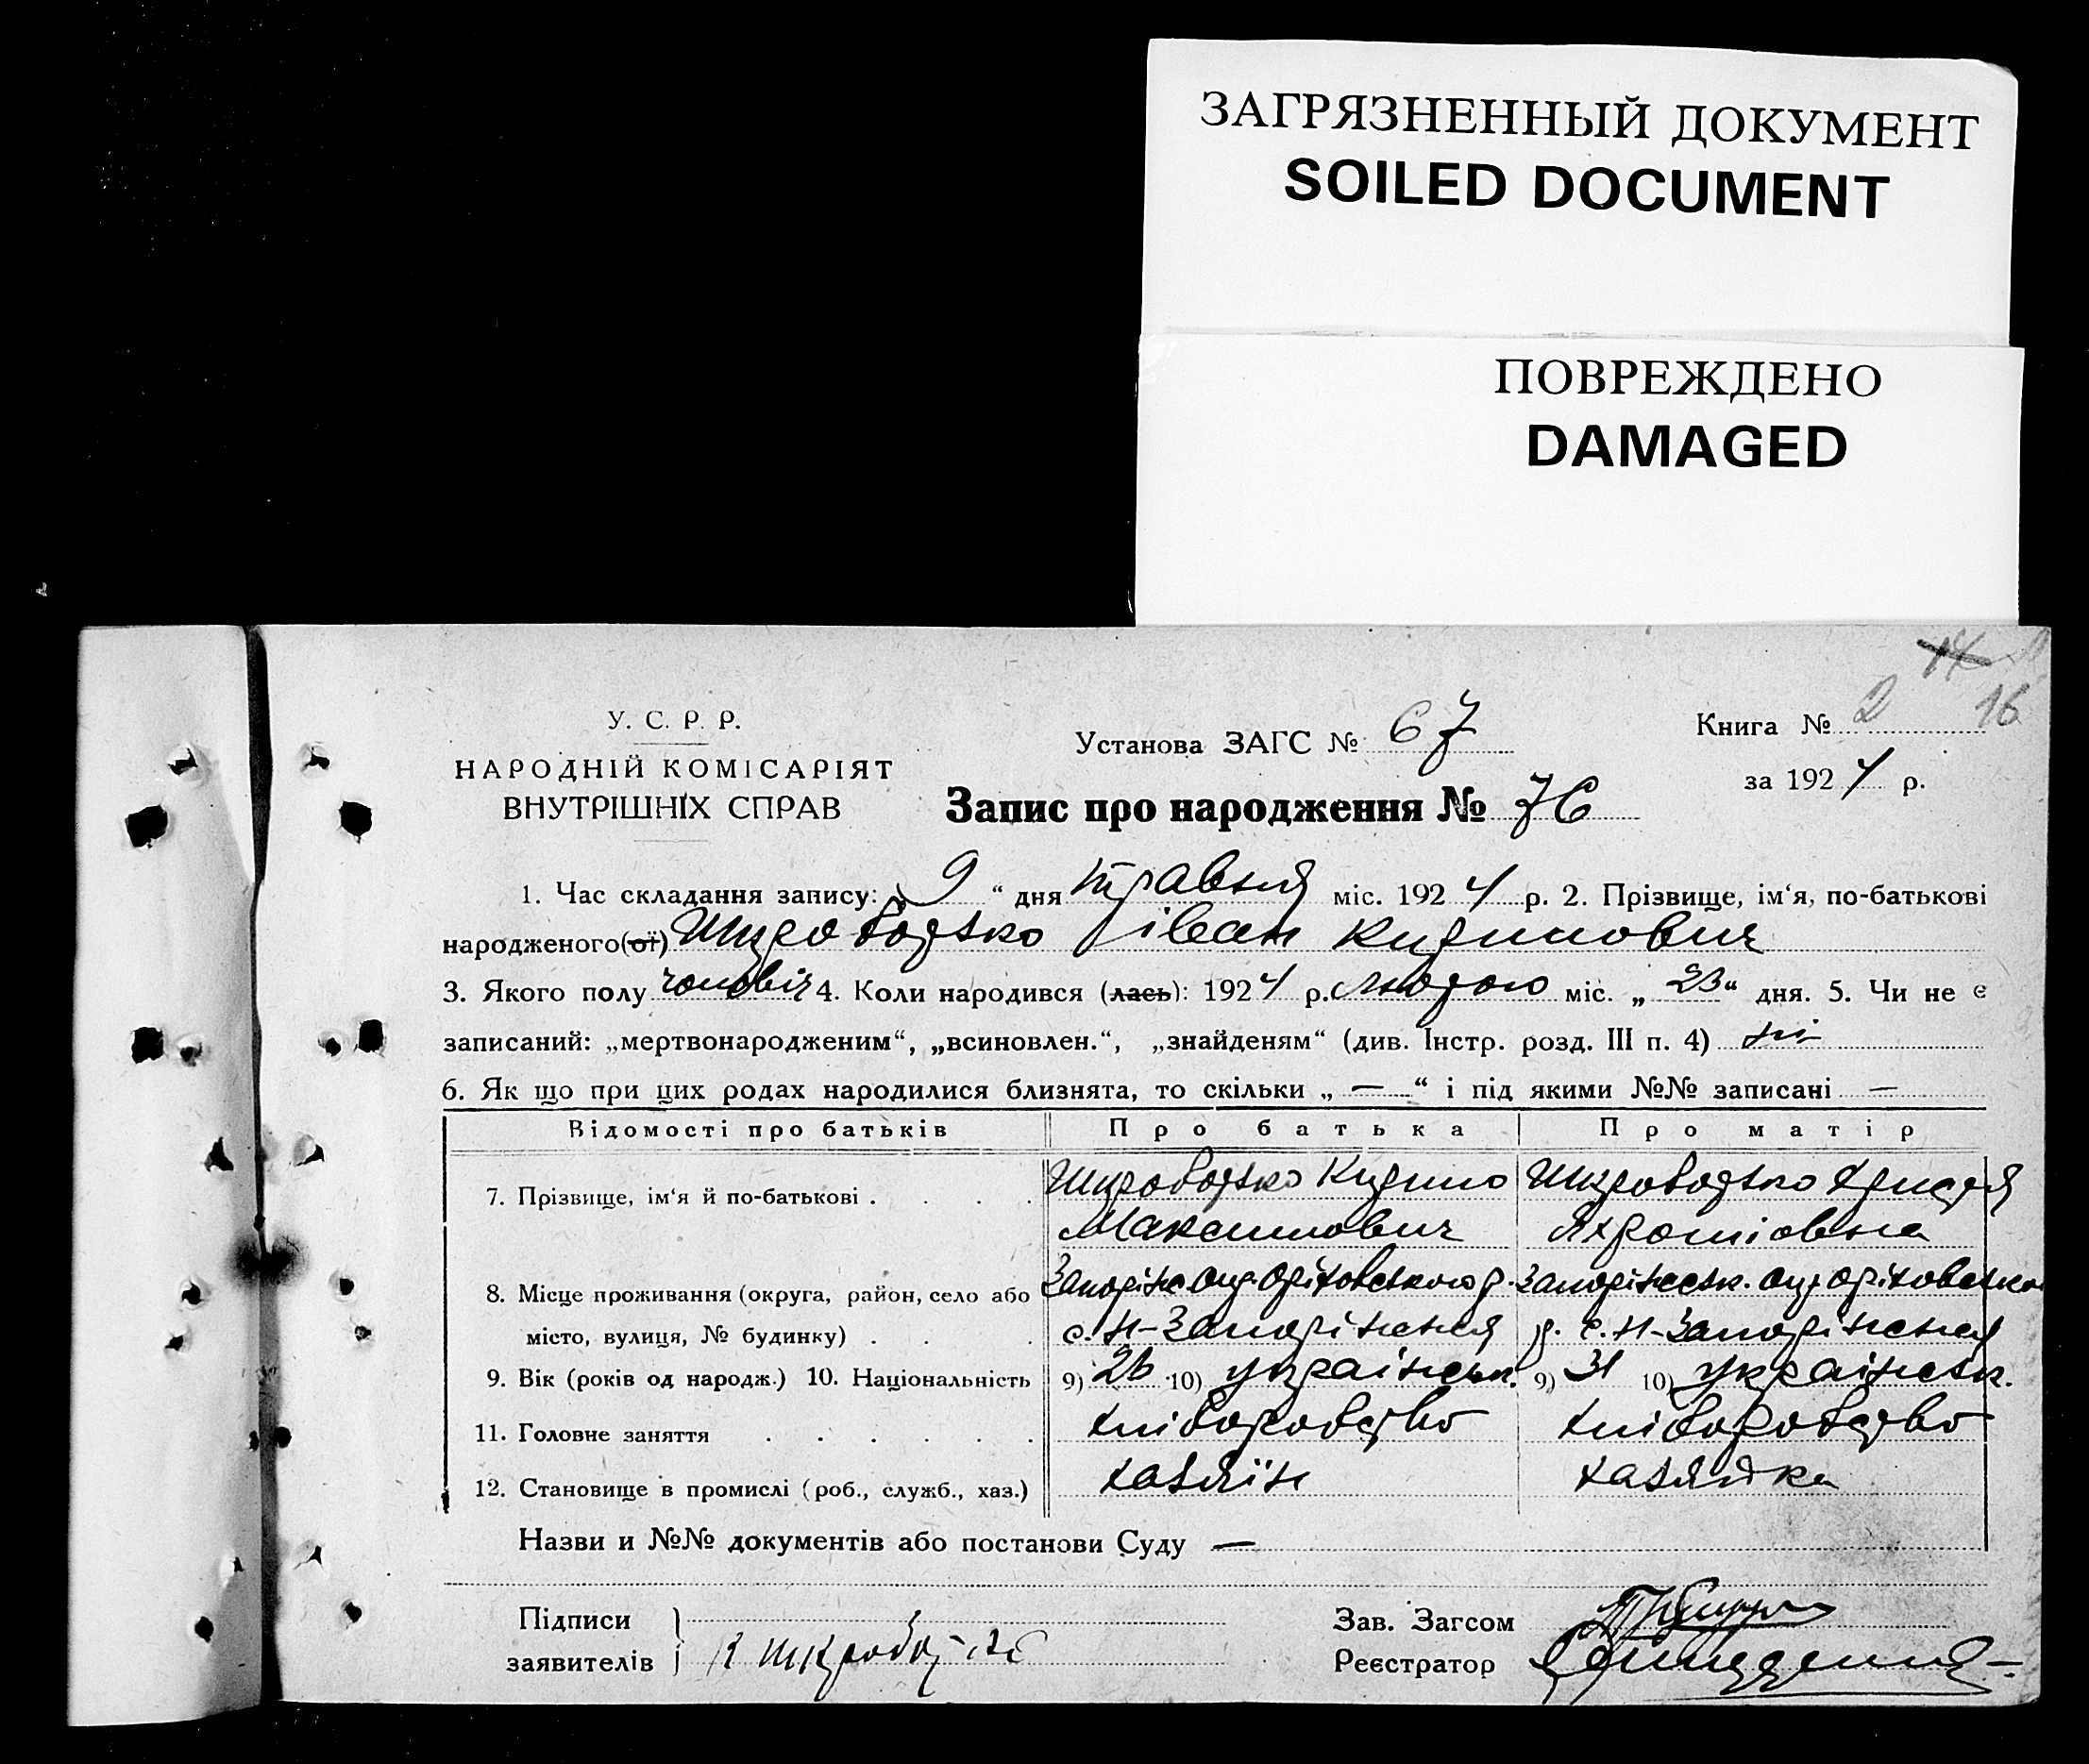 ЗАГРЯЗНЕННЫЙ ДОКУМЕНТ
SOILED DOCUMENT
ПОВРЕЖДЕНО
DAMAGED
14
16
У. С. Р. Р.
НАРОДНІЙ КОМІСАРІЯТ
ВНУТРІШНІХ СПРАВ
Установа ЗАГС № 67
Книга № 2
за 1924 р.
Запис про народження № 76
1. Час складання запису: „9“ дня травня міс. 1924 р. 2. Прізвище, ім‘я, по-батькові
народженого(ої) Шкроботько Іван Кирилович
3. Якого полу чоловіч 4. Коли народився (лась): 1924 р. лютого міс. „23“ дня. 5. Чи не є
записаний: „мертвонародженим“, „всиновлен.“, „знайденям“ (див. Інстр. розд. III п. 4) ні
6. Як що при цих родах народилися близнята, то скільки „—“ і під якими №№ записані —
Відомості про батьків Про батька Про матір
7. Прізвище, ім‘я й по-батькові . . . . Шкроботько Кирило Шкроботько
Максимович
8. Місце проживання (округа, район, село або Запоріжс. окр. Оріховського р. Запоріжськ. окр Оріховсько
місто, вулиця, № будинку) . . . с. Н-Запоріження р. с. Н-Запоріження
9. Вік (років од народж.) 10. Національність 9) 26 10) українськ. 9) 31 10) українськ.
11. Головне заняття . . . . . . хліборобство хліборобство
12. Становище в промислі (роб., служб., хаз.) хазяїн хазяйка
Назви и №№ документів або постанови Суду —
Підписи
заявителів К Шкробот
Зав. Загсом
Реєстратор